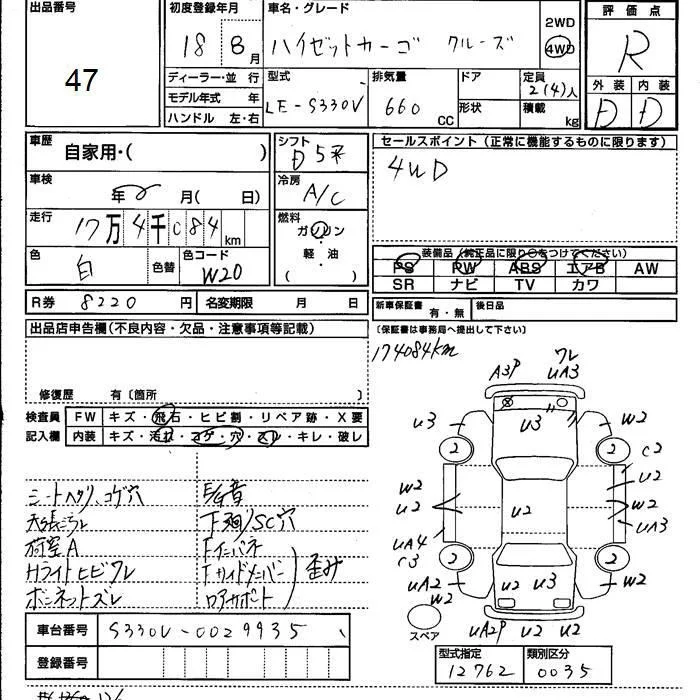 出品番号
47
初度登録年月
18 8月
車名・グレード
ハイゼットカーゴ クルーズ
2WD
4WD
評価点
R
外装 内装
D D
ディーラー・並行
モデル年式 年
ハンドル 左・右
型式
LE-S330V
排気量
660 CC
ドア
形状
定員
2(4)人
積載
kg
車歴
自家用・( )
車検
年 月( 日)
走行
17万4千084km
色
白
色替
色コード
W20
シフト
D5
冷房
A/C
燃料
ガソリン
・
軽・油
( )
R券 8220円
名変期限 月 日
セールスポイント (正常に機能するものに限ります)
4WD
装備品(純正品に限り○をつけてください)
PS PW ABS エアB AW
SR ナビ TV カワ
新車保証書 有・無
後日品
(保証書は事務局へ提出して下さい)
出品店申告欄(不良内容・欠品・注意事項等記載)
修復歴 有〔箇所 〕
検査員 FW キズ・飛石・ヒビ割・リペア跡・X要
記入欄 内装 キズ・汚れ・コゲ・穴・スレ・キレ・破レ
174084km
シートヘタリ、コゲ穴
荷室A
Hライトヒビワレ
ボンネットズレ
下廻りSC穴
Fインパネ
Fサイドメンバー
ロアサポート
歪み
A3P
ワレ
UA3
U3
U3
W2
2
2
C2
W2
U2
U2
U2
W2
UA3
UA4
C3
2
2
UA2
W2
U2
U3
W2
UA2P U2 U2
スペア
車台番号 S330V-0029935
登録番号
型式指定
12762
類別区分
0035